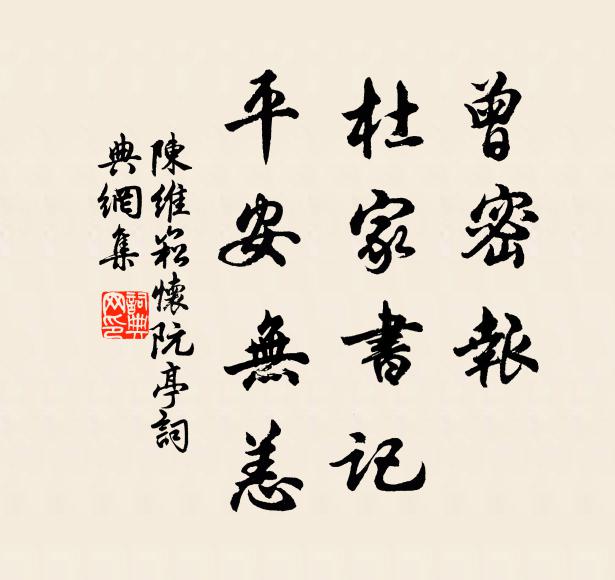 曾密報
杜家書記
平安無恙
陳維崧懷阮亭詞
典網集
詞典網印